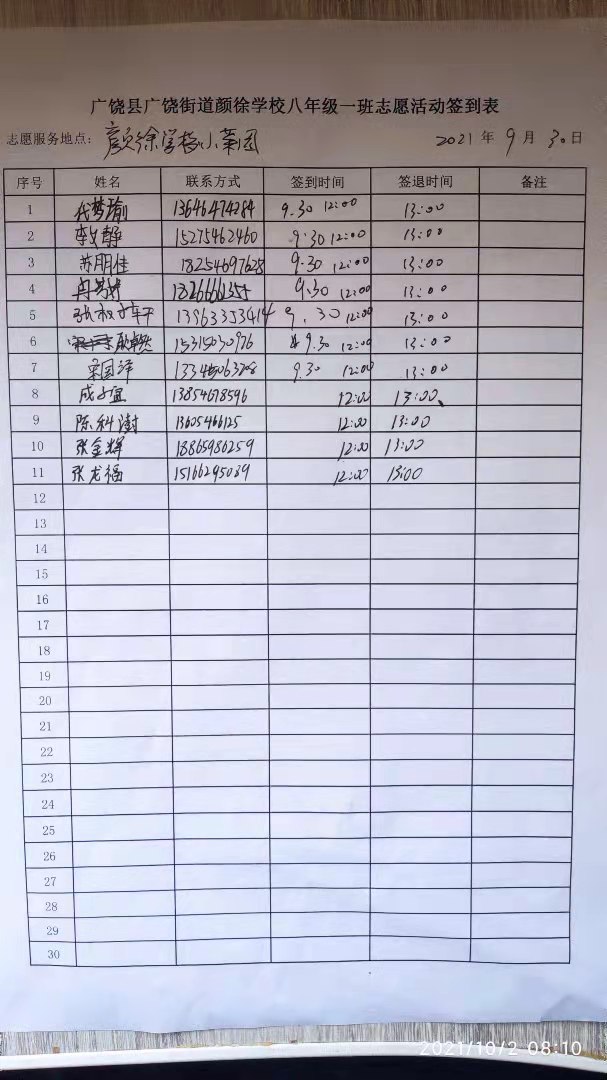 广饶县广饶街道颜徐学校八年级一班志愿活动签到表
志愿服务地点：颜徐学校小菜园 2021 年 9 月 30 日
序号 姓名 联系方式 签到时间 签退时间 备注
1 代梦瑜 13646474284 9.30 12:00 13:00
2 李文静 15275462460 9.30 12:00 13:00
3 苏朋佳 18254697628 9.30 12:00 13:00
4 18266661355 9.30 12:00 13:00
5 13963353414 9.30 12:00 13:00
6 15315030976 9.30 12:00 13:00
7 宋国洋 9.30 12:00 13:00
8 成子宜 13854678596 12:00 13:00
9 陈科澍 12:00 13:00
10 张金辉 18865986259 12:00 13:00
11 张龙福 15166295089 12:00 13:00
12
13
14
15
16
17
18
19
20
21
22
23
24
25
26
27
28
29
30
2021/10/2 08:10